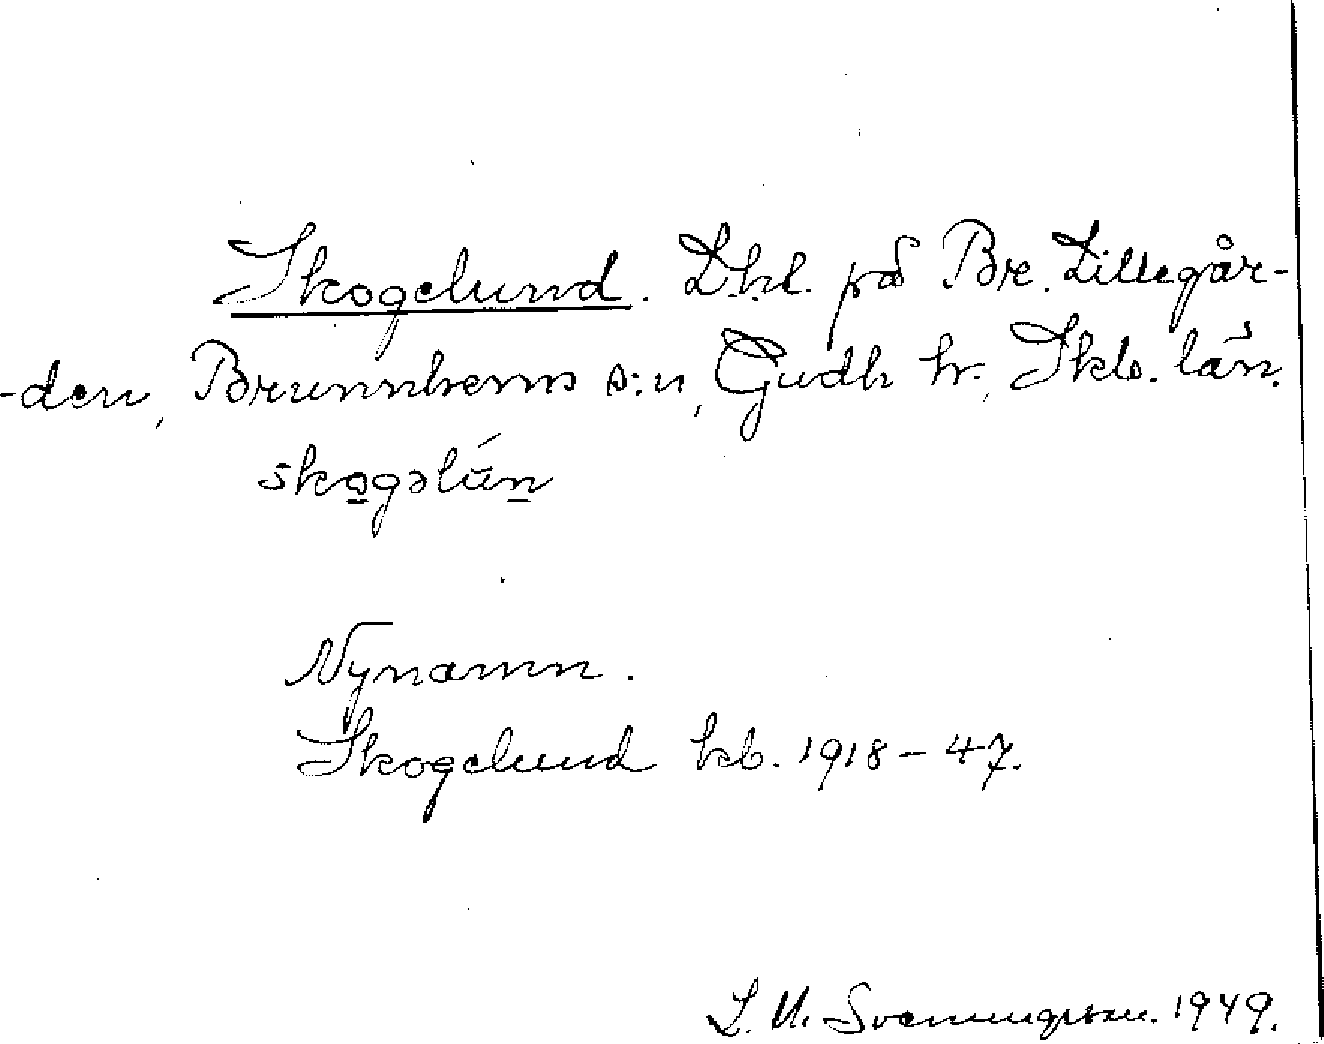 Skogelund. Lht. på Br. Lillegår-
-den, Brunnhems s:n, Gudh hr., Skb. län.
skogəlún
Nynamn.
Skogelund kb. 1918-47.
L. U. Svenungsson. 1949.